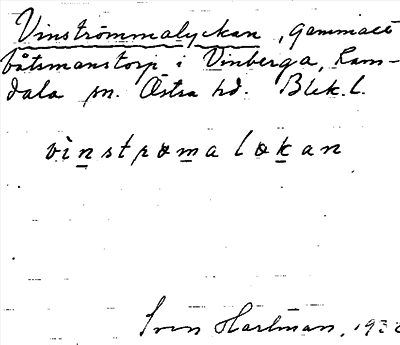 Vinströmmalyckan, gammalt
båtsmanstorp i Vinberga, Ram-
dala sn. Östra hd. Blek. l.
vinstrømaløkan
Sven Hartman, 193